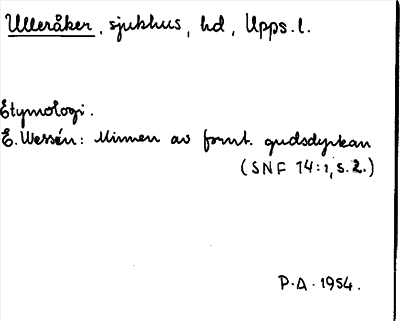 Ulleråker, sjukhus, hd, Upps. l.
Etymologi.
E. Wessén: Minnen av fornt. gudsdyrkan
(SNF 14:1, s. 2.)
P.A. 1954.